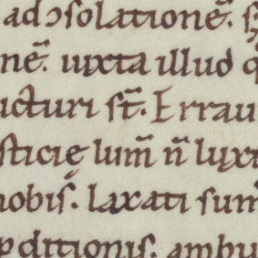 ad ↄsolationē. s
nē. iuxta illud q
icturi st̄. Errau
sticię lum̄ n̄ lux
nobis. Laxati sum
pditionis. ambu